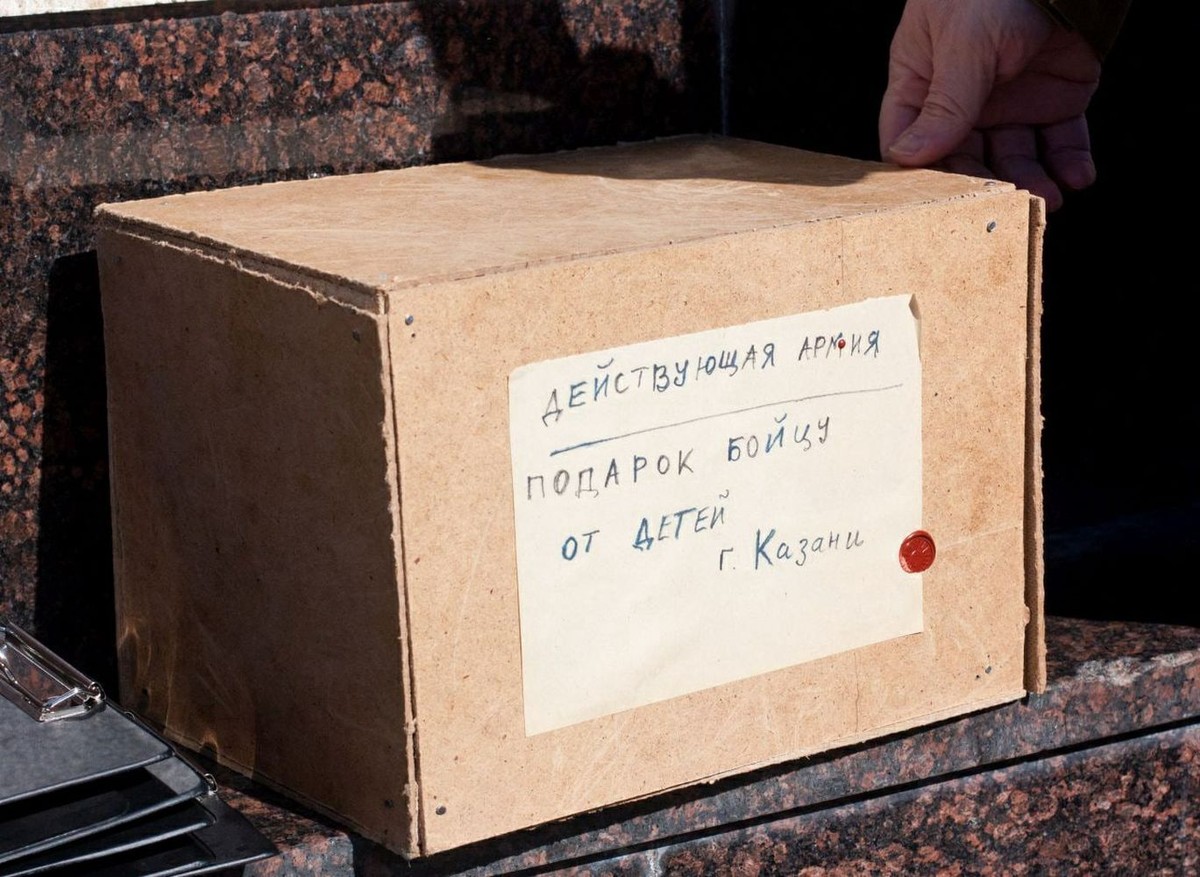 ДЕЙСТВУЮЩАЯ АРМИЯ
ПОДАРОК БОЙЦУ
ОТ ДЕТЕЙ
г. Казани